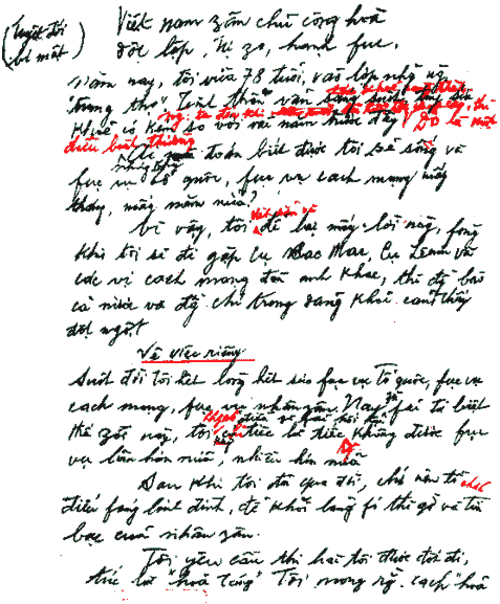 (tuyệt đối
bí mật)
Việt nam zân chủ cộng hoà
độc lập, tự zo, hạnh fúc.
Năm nay, tôi vừa 78 tuổi, vào lớp những
"trung thọ". Tinh thần vẫn
khoẻ có kém so với vài năm trước đây. Đó là một
điều bình thường.
đoán biết được tôi sẽ sống và
fục vụ tổ quốc, fục vụ cách mạng mấy
tháng, mấy năm nữa?
Vì vậy, tôi để lại mấy lời này, fòng
khi tôi sẽ đi gặp cụ Các Mác, cụ Lênin và
các vị cách mạng đàn anh khác, thì đồng bào
cả nước và đồng chí trong đảng khỏi cảm thấy
đột ngột.
Về việc riêng:
Suốt đời tôi hết lòng hết sức fục vụ Tổ quốc, fục vụ
cách mạng, fục vụ nhân zân. Nay fải từ biệt
thế zới này, tôi chỉ tiếc là tiếc không được fục
vụ lâu hơn nữa, nhiều hơn nữa
Sau khi tôi đã qua đời, chớ nên tổ chức
điếu fúng linh đình, để khỏi lãng fí thì giờ và tiền
bạc của nhân zân.
Tôi yêu cầu thi hài tôi được đốt đi,
tức là "hoả táng". Tôi mong rằng cách "hoả